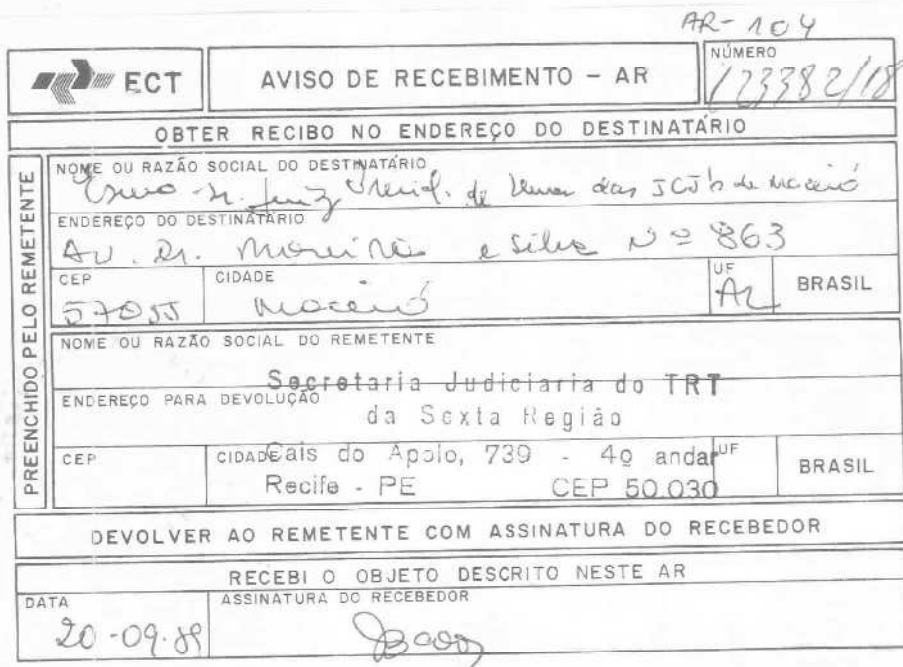 AR-104
ECT
AVISO DE RECEBIMENTO - AR
NÚMERO
123382/18
OBTER RECIBO NO ENDEREÇO DO DESTINATÁRIO
PREENCHIDO PELO REMETENTE
NOME OU RAZÃO SOCIAL DO DESTINATÁRIO
Exmo Sr. Juiz Presid. de uma das JCJs de Maceió
ENDEREÇO DO DESTINATÁRIO
Av. Dr. Moreira e Silva Nº 863
CEP
57055
CIDADE
Maceió
UF
AL
BRASIL
NOME OU RAZÃO SOCIAL DO REMETENTE
Secretaria Judiciaria do TRT
ENDEREÇO PARA DEVOLUÇÃO
da Sexta Região
CEP
CIDADE
Cais do Apolo, 739 - 4º andar
UF
BRASIL
Recife - PE CEP 50.030
DEVOLVER AO REMETENTE COM ASSINATURA DO RECEBEDOR
RECEBI O OBJETO DESCRITO NESTE AR
DATA
20-09-89
ASSINATURA DO RECEBEDOR